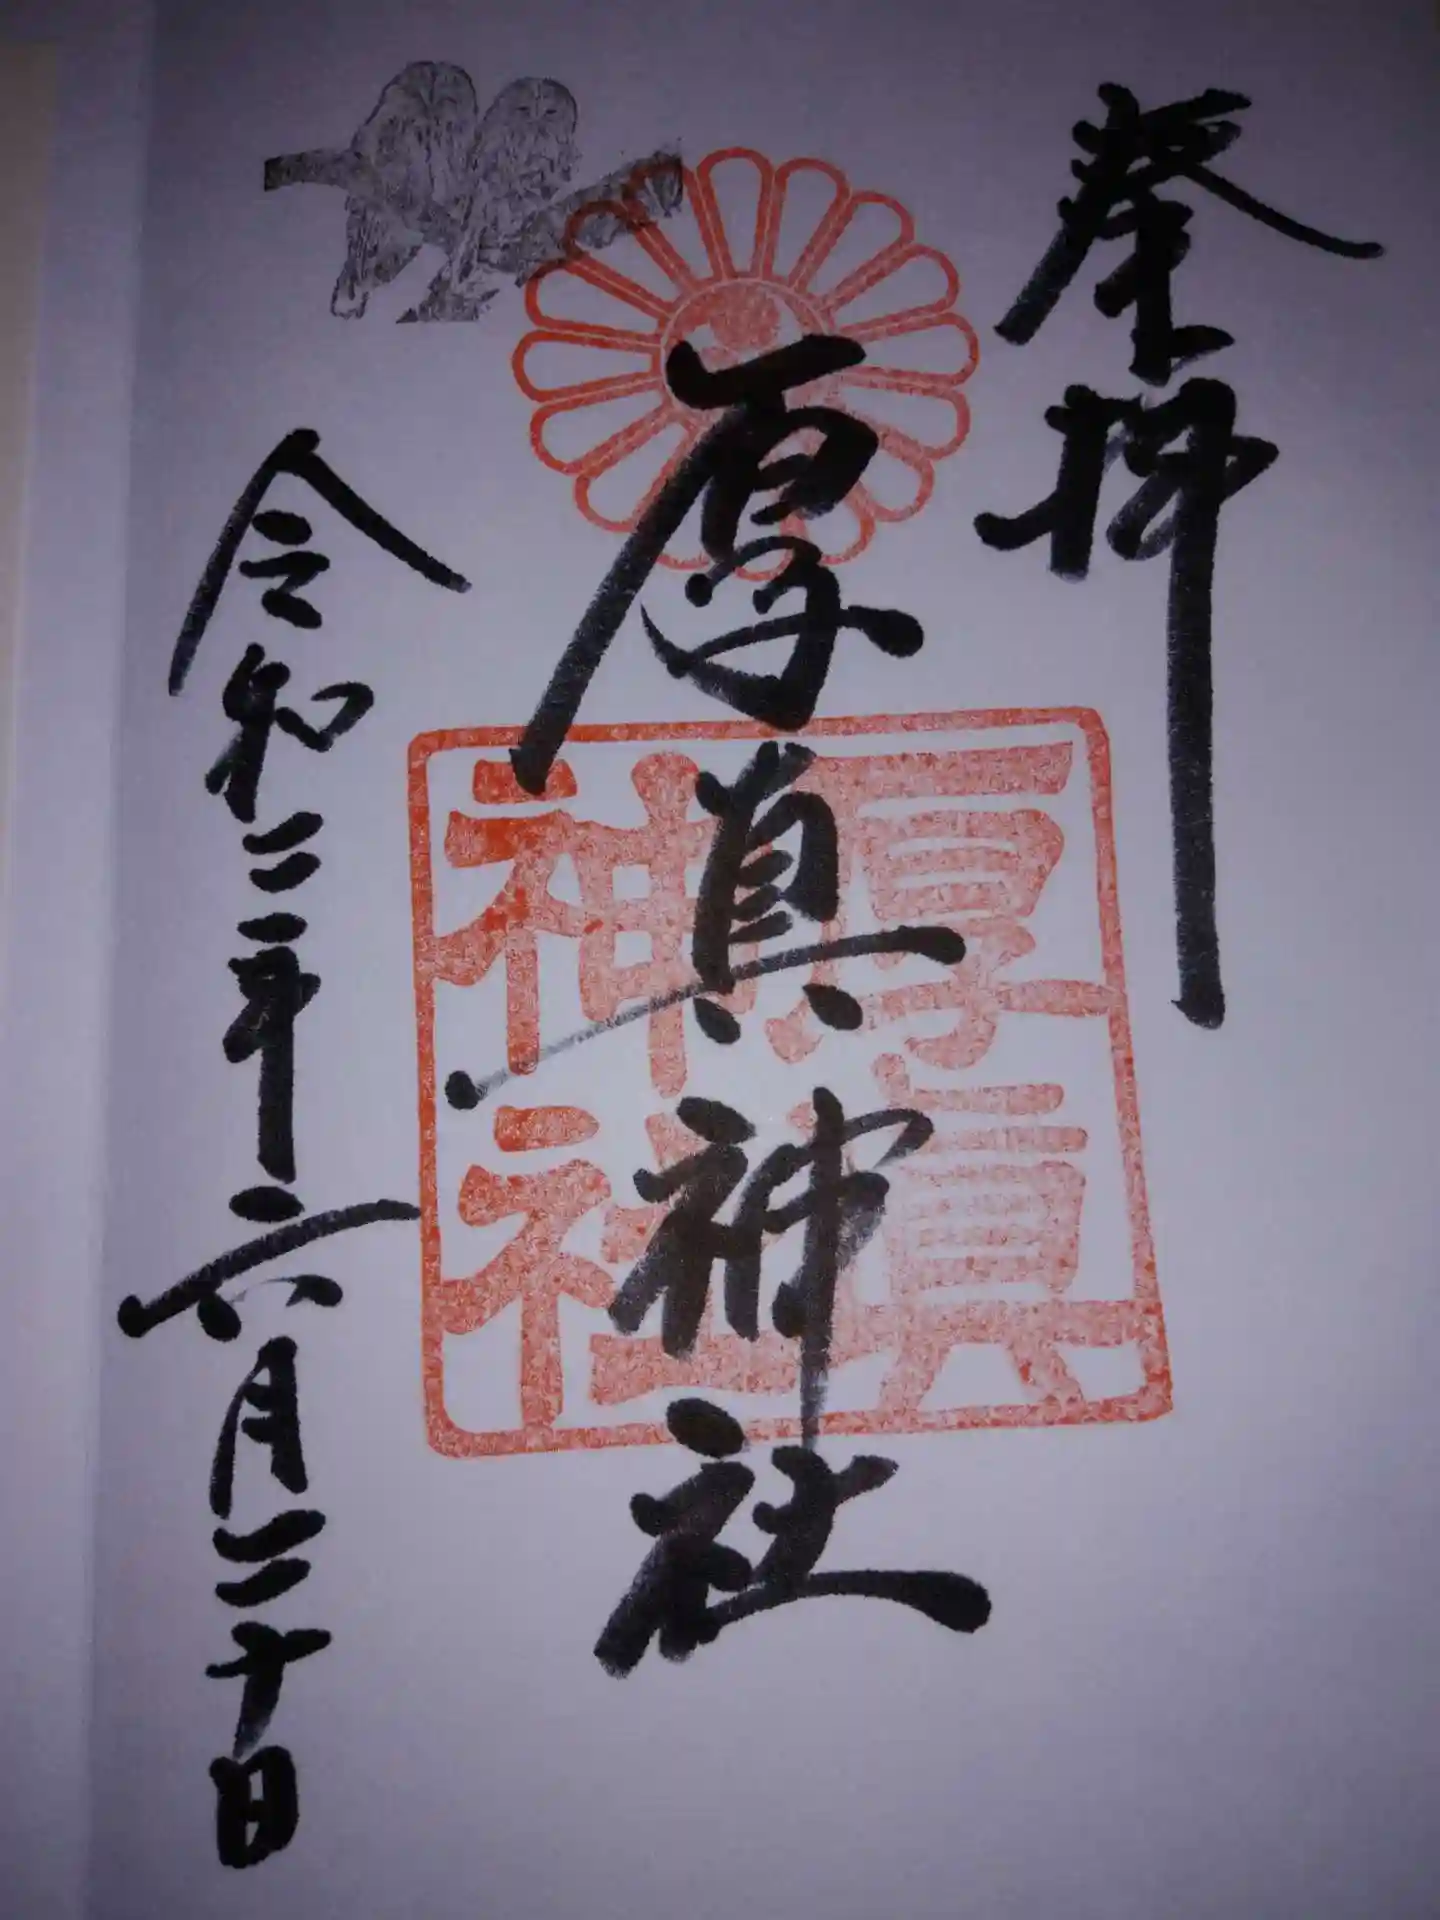 奉拝
厚真神社
厚眞
神社
令和二年六月二十日